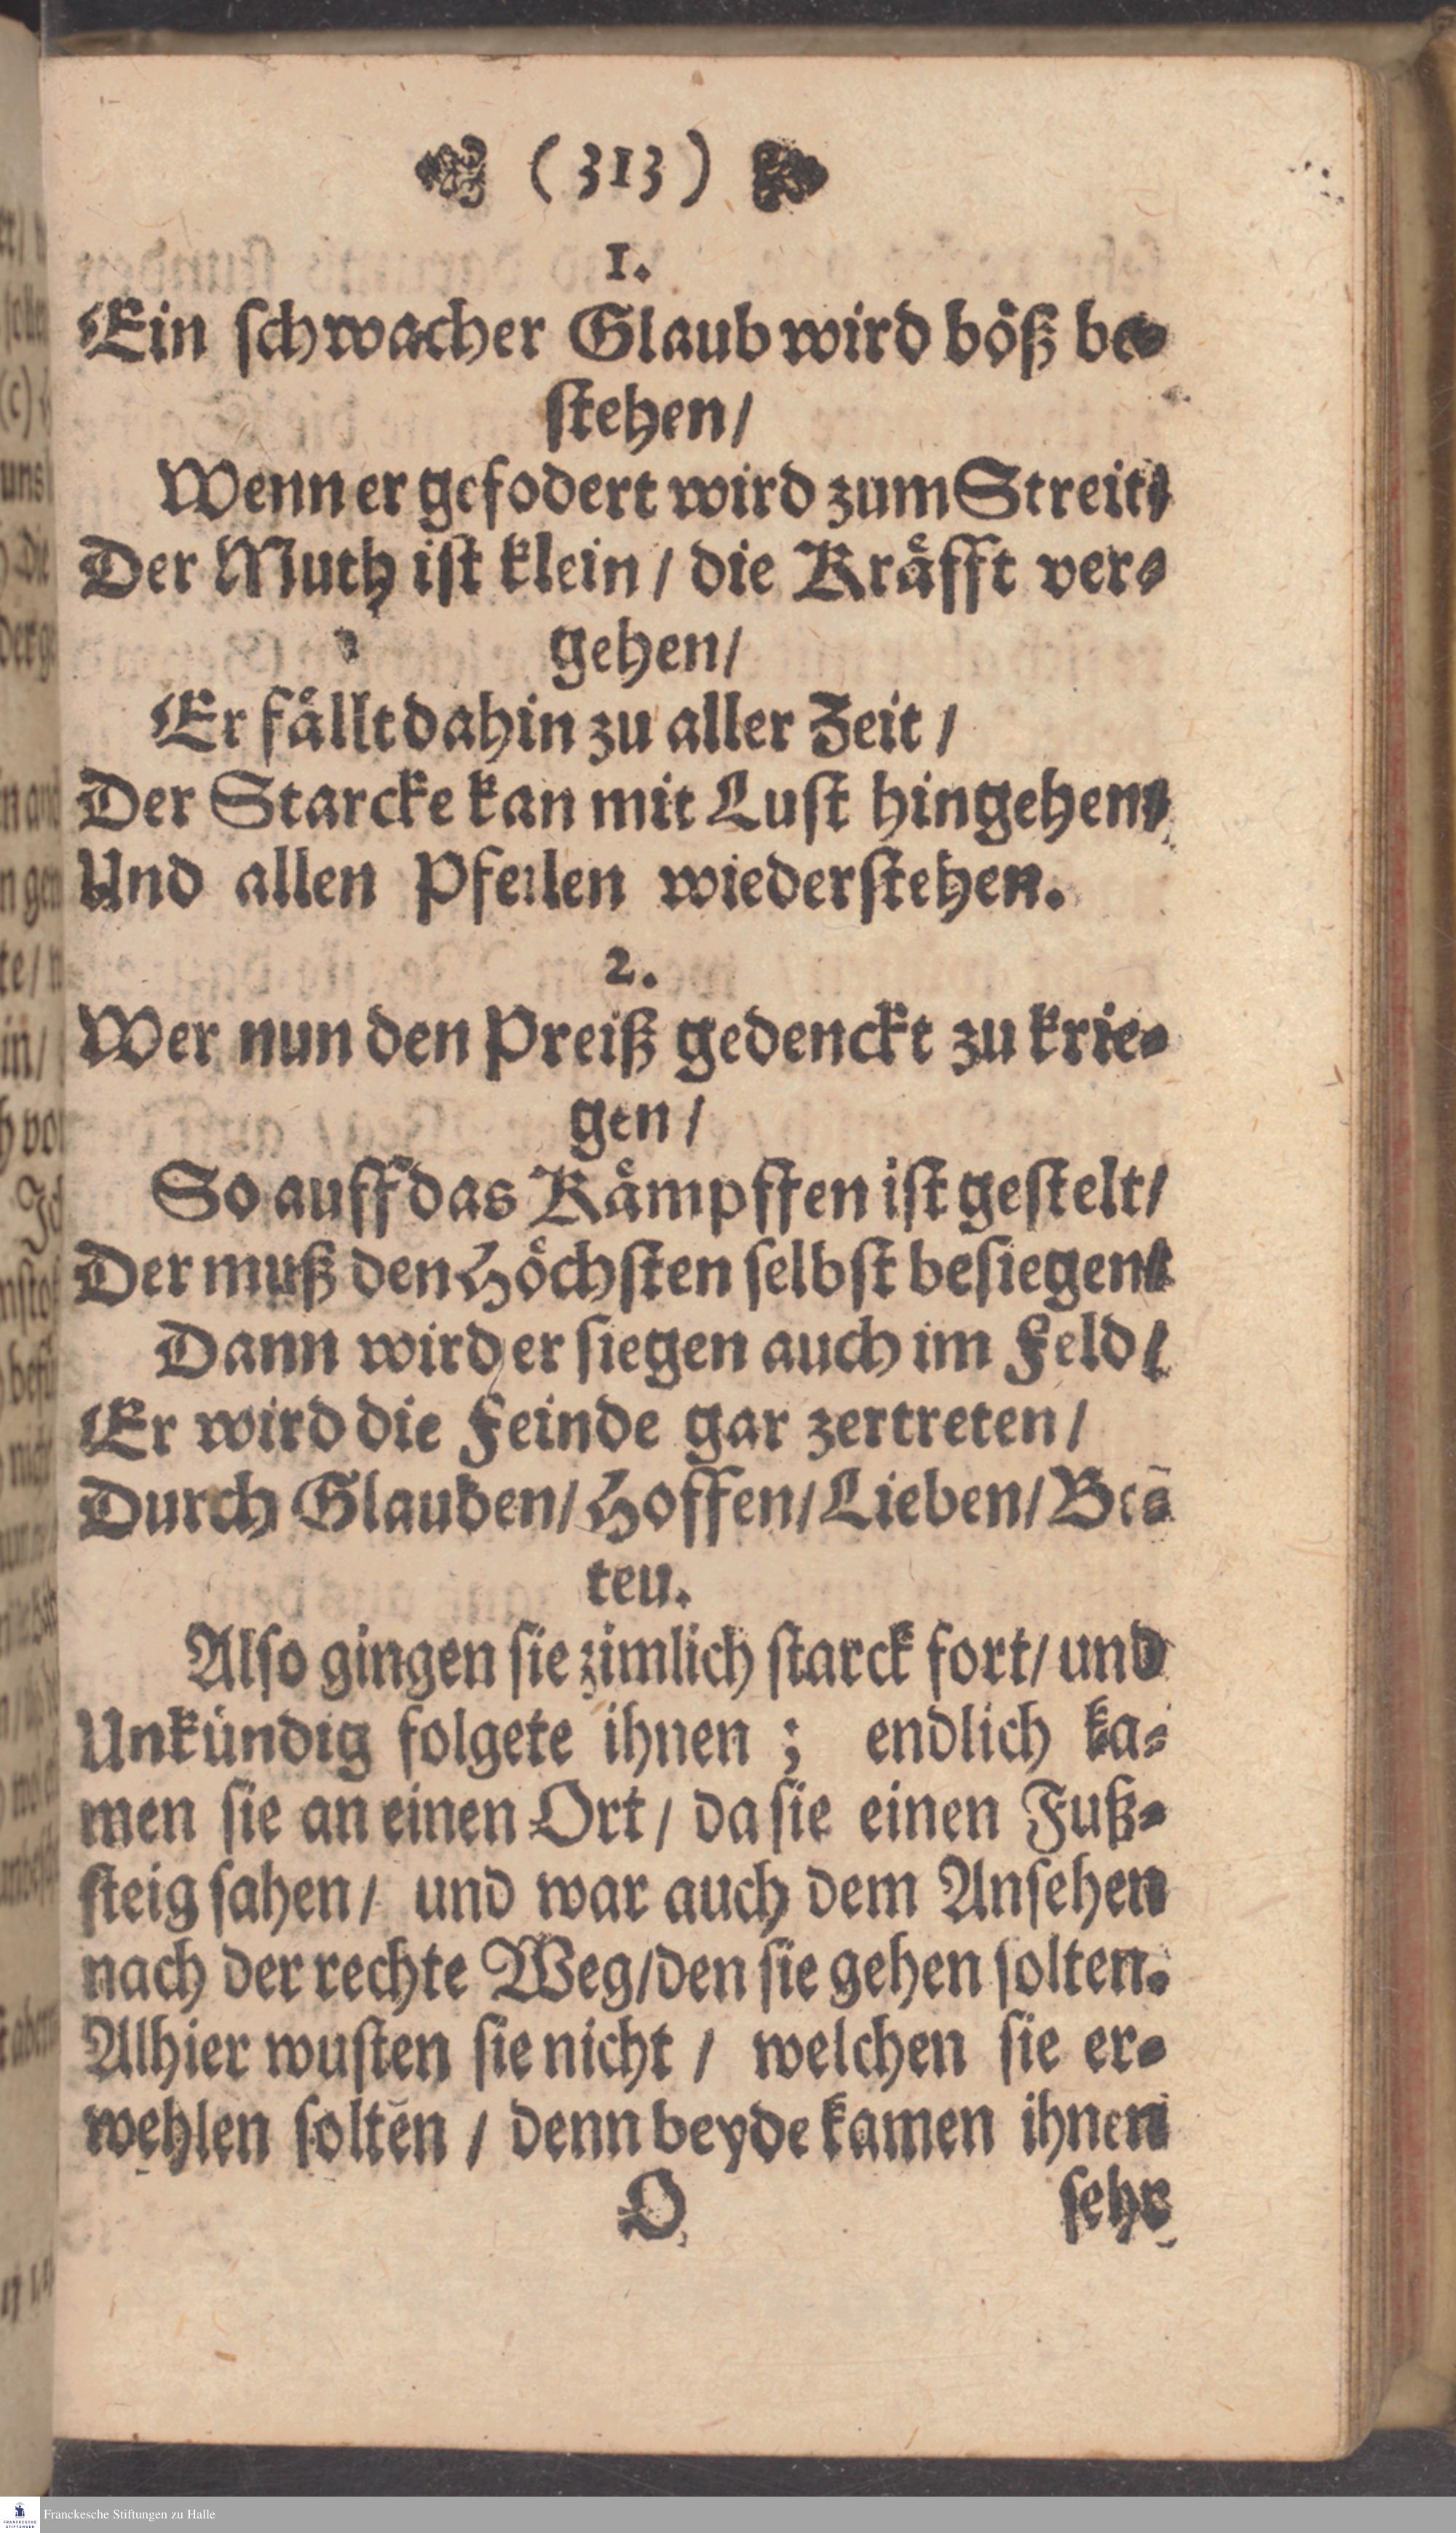 (313)
1.
Ein schwacher Glaub wird böß be-
stehen/
Wenn er gefodert wird zum Streit/
Der Muth ist klein / die Kräfft ver-
gehen/
Er fällt dahin zu aller Zeit /
Der Starcke kan mit Lust hingehen/
Und allen Pfeilen wiederstehen.
2.
Wer nun den Preiß gedenckt zu krie-
gen /
So auff das Kämpffen ist gestelt/
Der muß den Höchsten selbst besiegen/
Dann wird er siegen auch im Feld/
Er wird die Feinde gar zertreten/
Durch Glauben/ Hoffen/ Lieben/ Be-
ten.
Also gingen sie zimlich starck fort/ und
Unkündig folgete ihnen ; endlich ka-
men sie an einen Ort / da sie einen Fuß-
steig sahen/ und war auch dem Ansehen
nach der rechte Weg/den sie gehen solten.
Alhier wusten sie nicht / welchen sie er-
wehlen solten / denn beyde kamen ihnen
O
sehr
Franckesche Stiftungen zu Halle